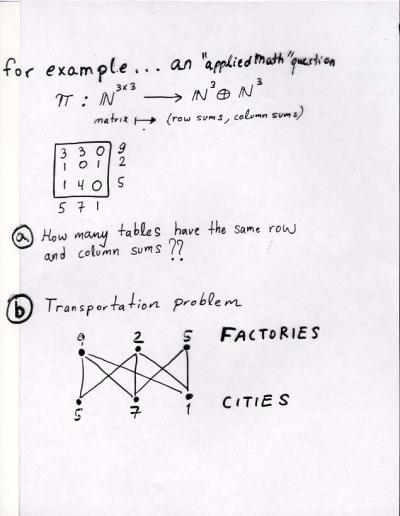 for example... an "applied math" question
π : ℕ^{3x3} ⟶ ℕ^3 ⊕ ℕ^3
matrix ↦ (row sums, column sums)
3 3 0 9
1 0 1 2
1 4 0 5
5 7 1
ⓐ How many tables have the same row
and column sums ??
ⓑ Transportation problem
9 2 5 FACTORIES
5 7 1 CITIES